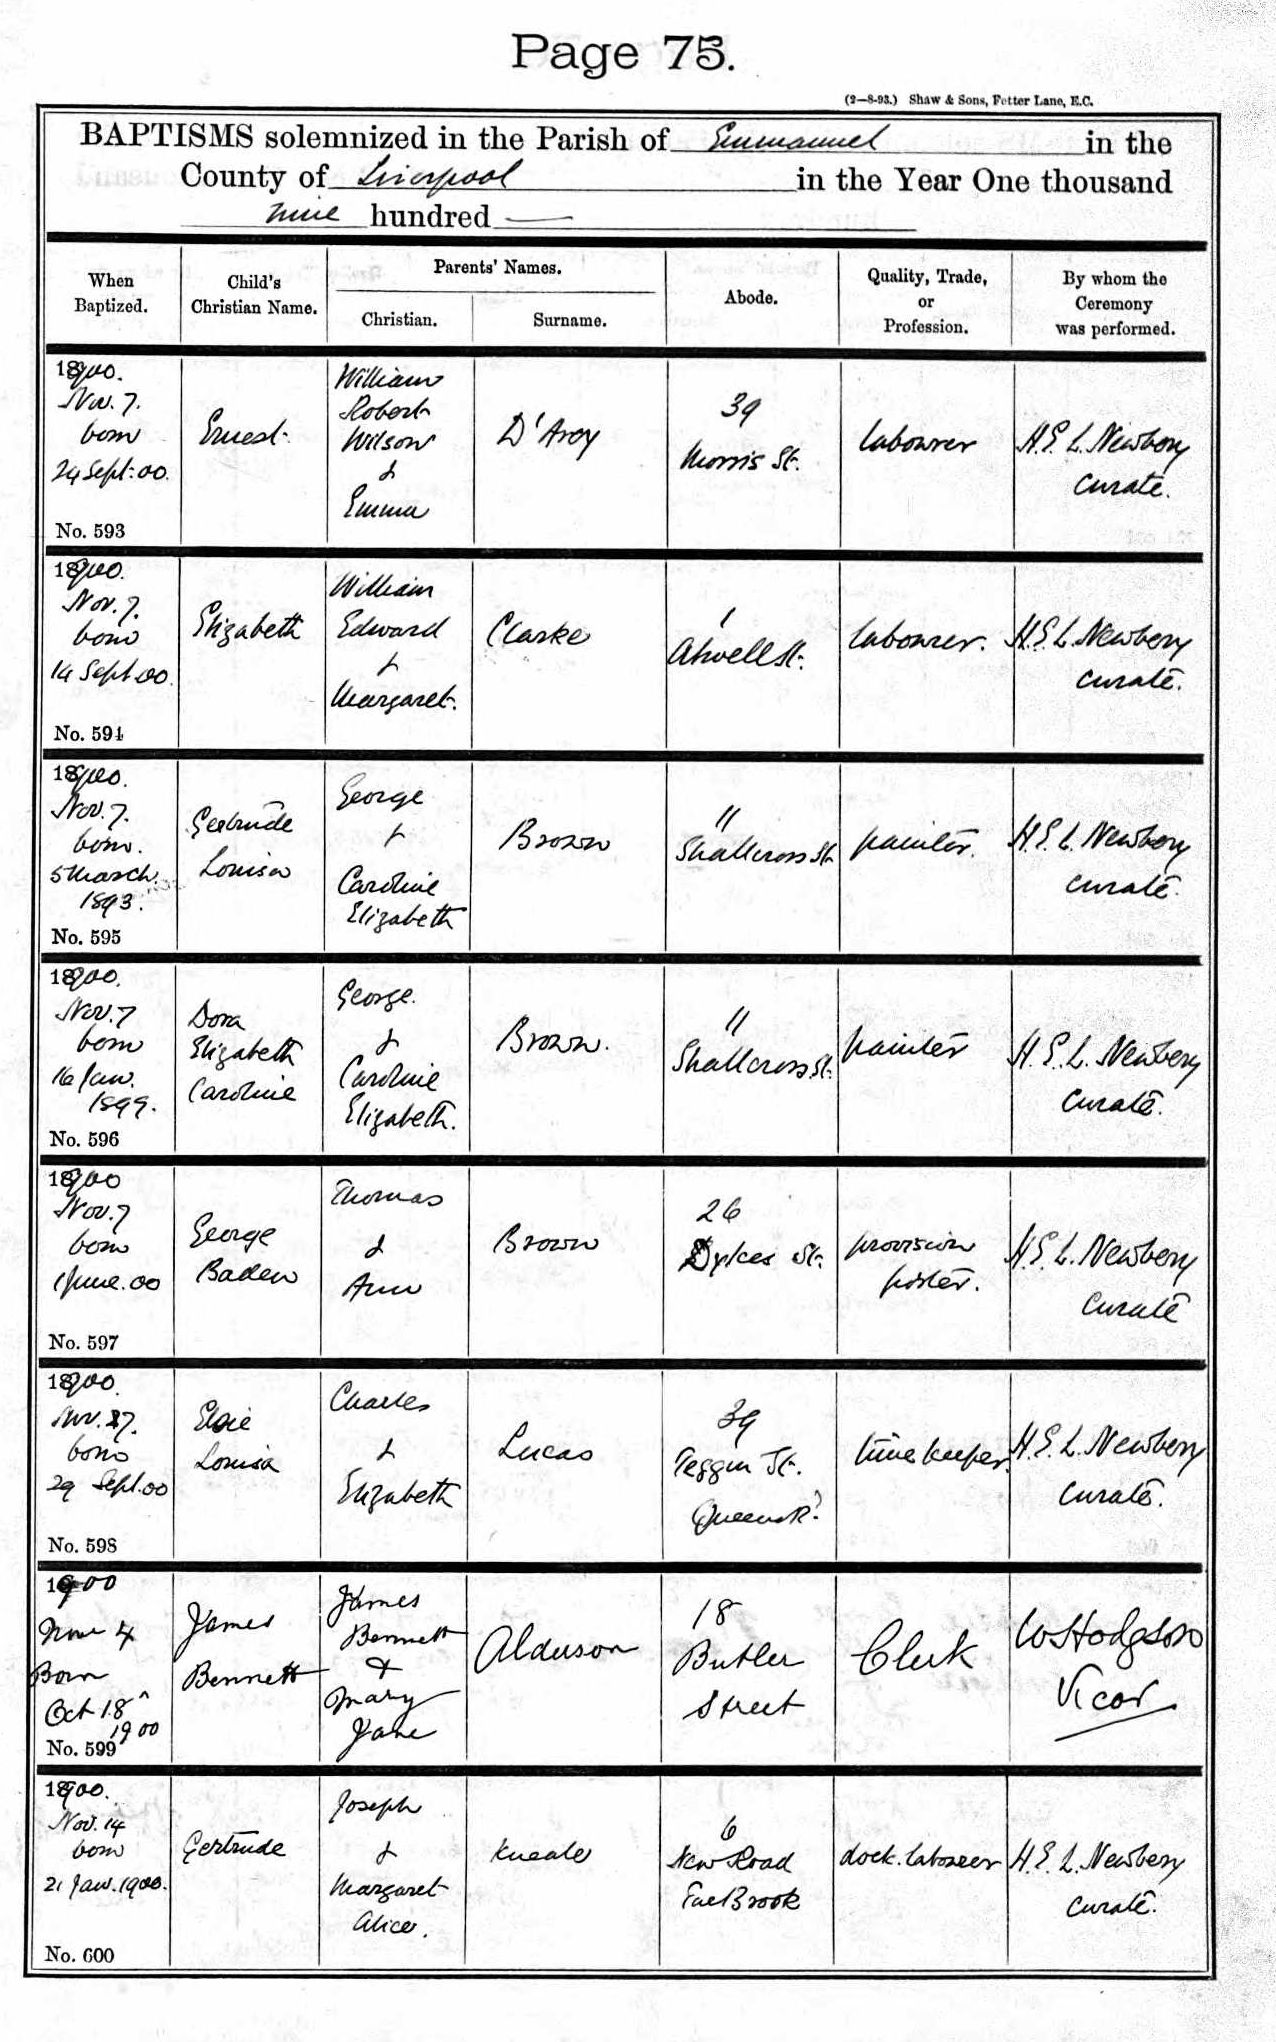 Page 75.
(2—8-93.) Shaw & Sons, Fetter Lane, E.C.
BAPTISMS solemnized in the Parish of Emmanuel in the
County of Liverpool in the Year One thousand
nine hundred —
When Baptized.
Child's Christian Name.
Parents' Names.
Christian.
Surname.
Abode.
Quality, Trade, or Profession.
By whom the Ceremony was performed.
1900.
Nov. 7.
born
24 Sept: 00.
No. 593
Ernest
William
Robert
Wilson
&
Emma
D'Arcy
39
Morris St.
labourer
H.E.L. Newbery
curate.
1900.
Nov. 7.
born
14 Sept 00.
No. 594
Elizabeth
William
Edward
&
Margaret.
Clarke
1
Atwell St.
labourer.
H.E.L. Newbery
curate.
1900.
Nov. 7.
born.
5 March.
1893.
No. 595
Gertrude
Louisa
George
&
Caroline
Elizabeth
Brown
11
Shallcross St.
painter.
H.E.L. Newbery
curate.
1900.
Nov. 7
born
16 Jan.
1899.
No. 596
Dora
Elizabeth
Caroline
George.
&
Caroline
Elizabeth.
Brown.
11
Shallcross St.
painter
H.E.L. Newbery
curate.
1900
Nov. 7
born
1 June. 00
No. 597
George
Baden
Thomas
&
Ann
Brown
26
Dykes St.
provision
porter.
H.E.L. Newbery
curate
1900.
Nov. 7.
born
29 Sept. 00
No. 598
Elsie
Louisa
Charles
&
Elizabeth
Lucas
39
St.
time keeper.
H.E.L. Newbery
curate.
1900
Nov 4
Born
Oct 18
1900
No. 599
James
Bennett
James
Bennett
&
Mary
Jane
Alderson
18
Butler
Street
Clerk
W Hodgson
Vicar
1900.
Nov. 14
born
21 Jan. 1900.
No. 600
Gertrude
Joseph
&
Margaret
Alice.
Kneale
6
New Road
Tue Brook
dock. labourer
H.E.L. Newbery
curate.